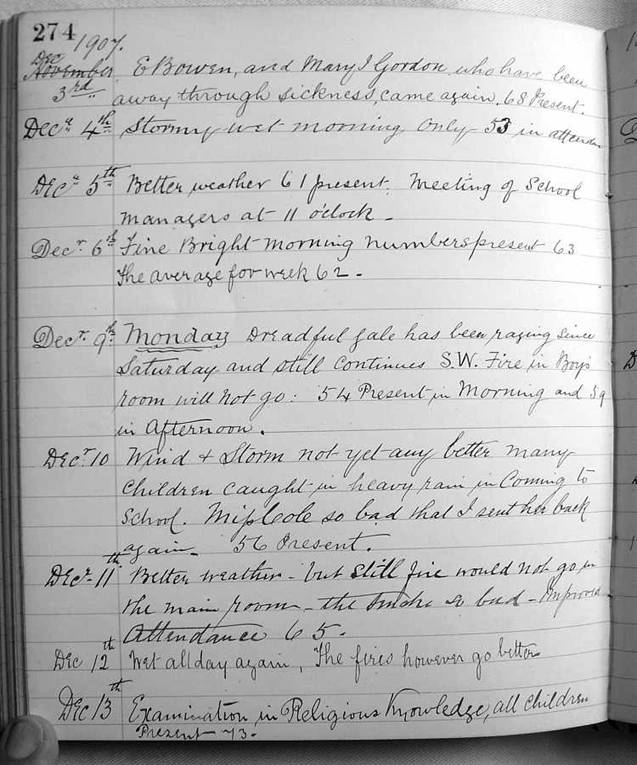 274
1907.
Dec
November E Bowen, and Mary J Gordon who have been
3rd away through sickness, came again. 68 Present.
Decr 4th Stormy wet morning only 53 in
Decr 5th Better weather 61 present. Meeting of School
managers at 11 o'clock -
Decr 6th Fine Bright morning numbers present 63
The average for week 62 -
Decr 9th Monday Dreadful gale has been raging since
Saturday and still continues S.W. Fire in Boys
room will not go: 54 Present in Morning and 59
in Afternoon.
Decr 10 Wind & Storm not yet any better many
children caught in heavy rain in Coming to
School. Miss Cole so bad that I sent her back
again - 56 Present.
Decr 11th Better weather - but still fire would not go in
the main room - the smoke so bad - Improved
Attendance 65 -
Dec 12th Wet all day again, The fires however go better
Dec 13th Examination in Religious Knowledge, all children
Present - 73 -